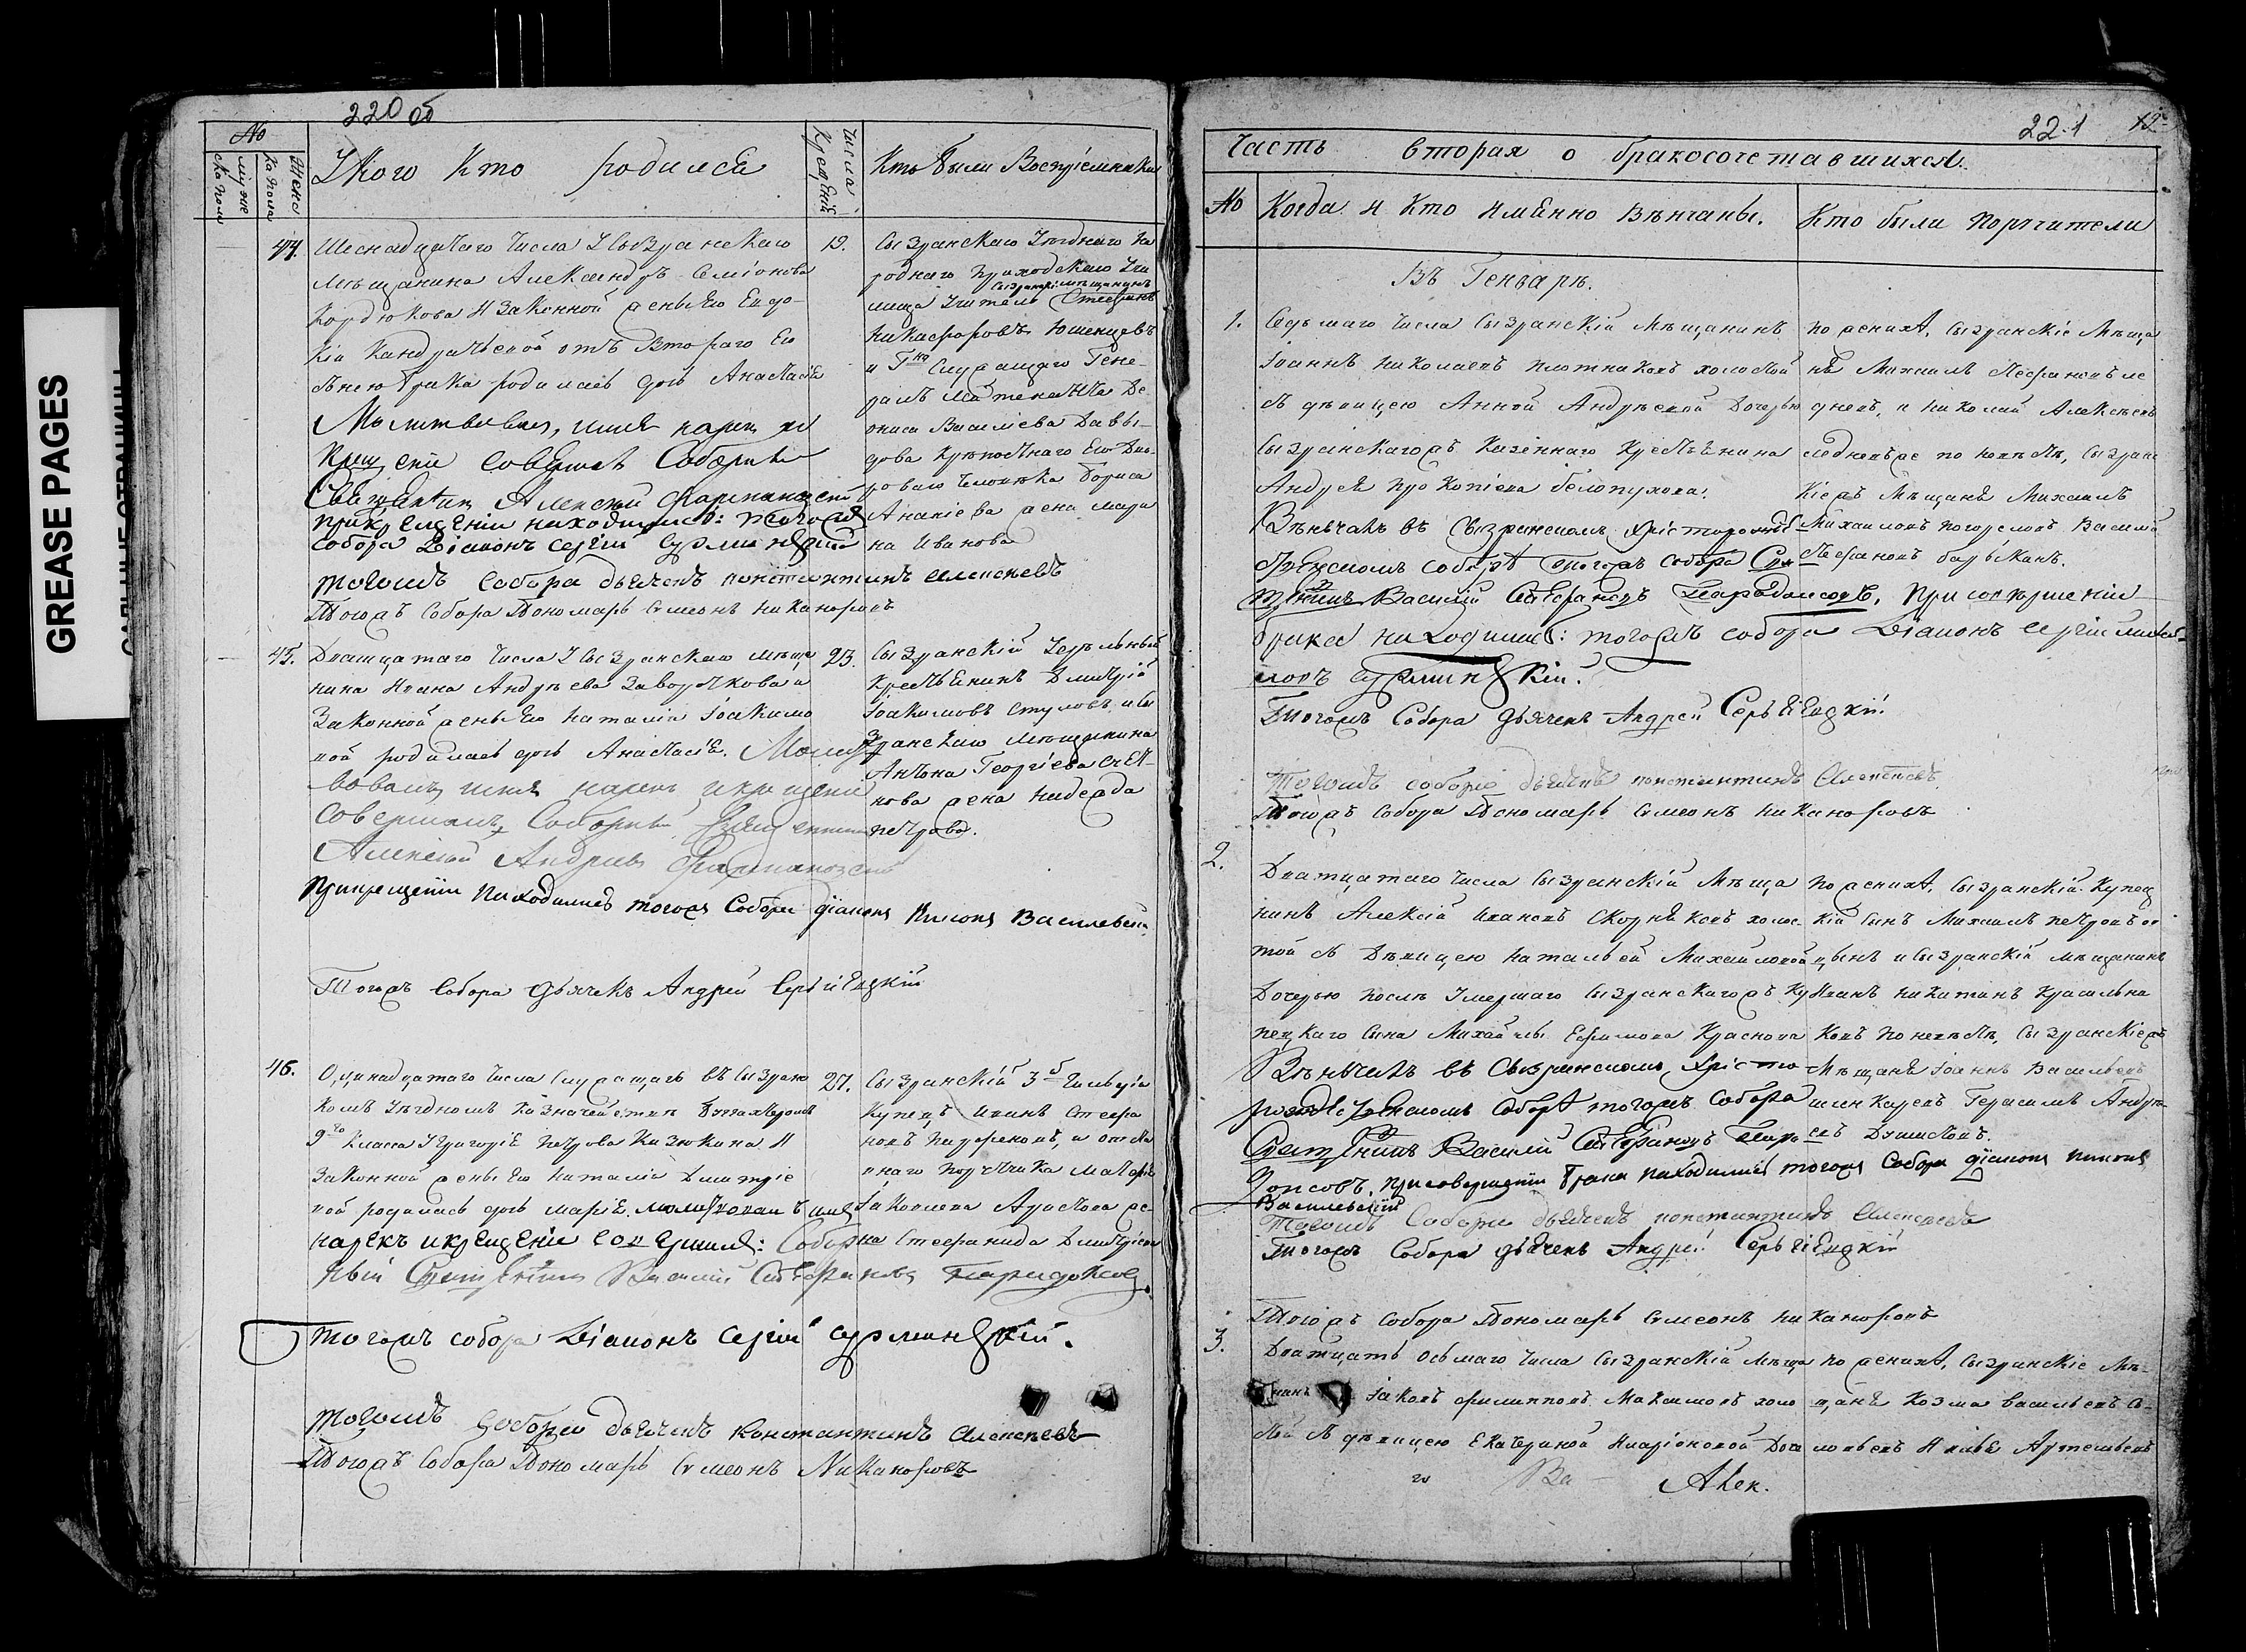 GREASE PAGES
220 об
No
Мужеска пола
Женска пола
У кого кто родился
Числа Крещенія
Кто были Воспріемники
44.
Шеснадцатаго числа У Сызранскаго
мѣщанина Александръ Семіонова
Кордюкова и законной жены его Евдо-
кіи Кандратьевой отъ втораго его
брака родилась дочь Анастасія
Молитвовалъ, имя нарекъ и
Крещеніе совершилъ Соборный
Священникъ Алексей Фармаковскій
при крещеніи находились: тогожъ
собора Діаконъ Сергій Сурминскій
тогожъ собора дьячекъ константинъ алексѣевъ
Тогожъ Собора Пономарь Симеонъ Никаноровъ
19.
Сызранскаго Уѣзднаго На
роднаго Приходскаго Учи
лища Учитель Стефанъ
Никифоровъ Юшенцевъ
и Гна Служащаго Гене-
ралъ Лейтенанта Де
ниса Васильева Давы-
дова крѣпостнаго Его Дво-
роваго человѣка Бориса
Ананіева жена Марі
на Иванова
45.
Дватцатаго числа У Сызранскаго мѣща
нина Ивана Андрѣева Заворочкова и
Законной жены его Наталіи Іоакимо
вой родилась дочь Анастасія. Молит
вовалъ имя нарекъ и крещеніе
совершилъ Соборный Священникъ
Алексей Андреевъ Фармаковскій
При крещеніи Находились тогожъ Собора діаконъ Никонъ Василевскій
Тогожъ Собора дьячекъ Андрей Сергіевскій
23.
Сызранскій Удѣльный
крестьянинъ Димитрій
Іоакимовъ Стуловъ и Сы
зранскаго мѣщанина
Антона Георгіева
жена Надежда
Петрова.
46.
Одинадцатаго числа служащаго въ Сызранс
комъ Уѣздномъ Казначействѣ Бухгалтеромъ
9го класса У Григорія Петрова Казюкина и
Законной жены его Наталіи Димитріе
вой родилась дочь Марія. молитвовалъ имя
нарекъ и крещеніе совершилъ: Собор
ный Священникъ Василій Стефановъ Парадоксовъ
тогожъ собора Діаконъ Сергій Сурминскій.
тогожъ собора дьячекъ Константинъ Алексѣевъ
Тогожъ Собора Пономарь Симеонъ Никаноровъ
27.
Сызранскій 3й Гильдіи
Купецъ Иванъ Стефа
новъ и отстав
наго Поручика
Іаковлева же-
на Стефанида Димитріева
221
Часть вторая о бракосочетавшихся.
No
Когда и кто именно вѣнчаны.
Кто были поручители
Въ Генварѣ.
1.
Седьмаго числа Сызранскій Мѣщанинъ
Іоаннъ Николаевъ Плотниковъ холостой
съ дѣвицею Анной Андрѣевой Дочерью
Сызранскагожъ Казеннаго Крестьянина
Андрея Прокопіева Белопухова.
Вѣнчалъ въ Сызранскомъ Христорожде
ственскомъ соборѣ тогожъ собора Свя
щенникъ Василій Стефановъ Парадоксовъ, При совершеніи
брака находились: тогожъ собора Діаконъ Сергій
Сурминскій.
Тогожъ Собора дьячекъ Андрей Сергіевскій
Тогожъ собора дьячекъ константинъ Алексѣевъ
Тогожъ Собора Пономарь Симеонъ Никаноровъ
по женихѣ, Сызранскіе Мѣща
не Михаилъ Стефановъ
и Николай Алексѣевъ
по невѣстѣ, Сызран
скіежъ Мѣщане Михаилъ
Михаиловъ Погореловъ Василій
Стефановъ
2.
Дватцатаго числа Сызранскій Мѣща
нинъ Алексій Ивановъ Скорняковъ холос-
той съ Дѣвицею Натальей Михайловой
Дочерью послѣ умершаго Сызранскагожъ Ку
пецкаго Сына Михайлы Ефимова Краснова
Вѣнчалъ въ Сызранскомъ Христо
рождественскомъ Соборѣ тогожъ Собора
Священникъ Василій Стефановъ Парадо
ксовъ, При совершеніи брака находились тогожъ Собора діаконъ Никонъ
Василевскій
Тогожъ Собора дьячекъ константинъ Алексѣевъ
Тогожъ Собора дьячекъ Андрей Сергіевскій
Тогожъ собора Пономарь Симеонъ Никаноровъ
по женихѣ, Сызранскій Купец
кій сынъ Михаилъ Петровъ
и Сызранскій мѣщанинъ
Иванъ Никитинъ Красильни
ковъ по невѣстѣ, Сызранскіежъ
Мѣщане Іоаннъ Васильевъ
Герасимъ Андре
евъ
3.
Дватцать осьмаго числа Сызранскій мѣща
нинъ Іаковъ Филипповъ Максимовъ холо
стой съ дѣвицею Екатериной Иларіоновой Доч
по женихѣ, Сызранскіе Мѣ-
щане Козма Васильевъ
и Артемьевъ
Алек.